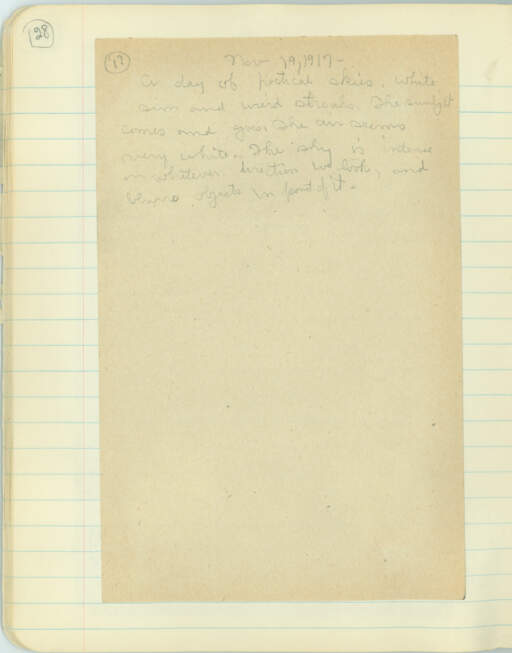 28
17
Nov 19, 1917 -
A day of poetical skies, white
sun and weird streaks. The sunlight
comes and goes. The air seems
very white. The sky is intense
in whatever direction we look, and
objects in front of it.